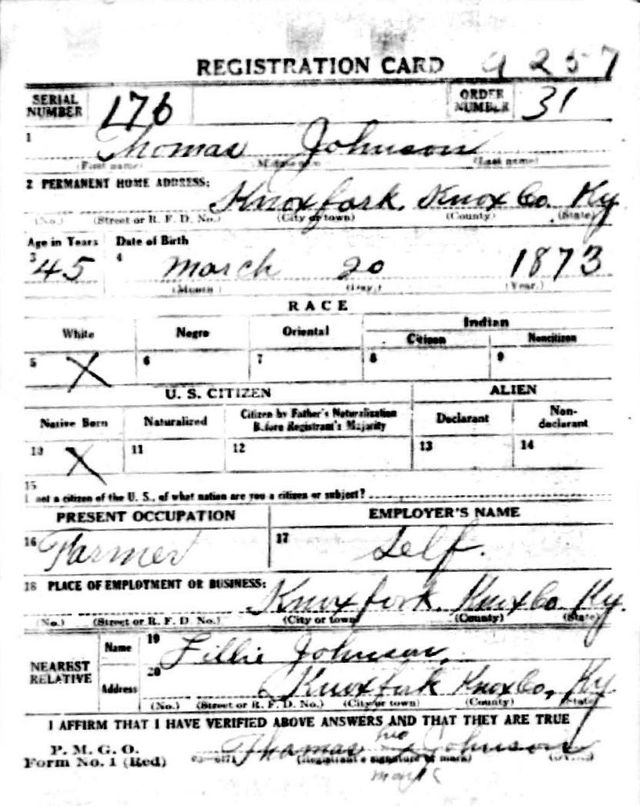 REGISTRATION CARD 9 257
SERIAL NUMBER 176 ORDER NUMBER 31
1 Thomas Johnson
(First name) (Middle name) (Last name)
2 PERMANENT HOME ADDRESS: Knoxfork, Knox Co, Ky
(No.) (Street or R. F. D. No.) (City or town) (County) (State)
Age in Years Date of Birth
3 45 4 march 20 1873
(Month) (Day.) (Year.)
RACE
White Negro Oriental Indian
Citizen Noncitizen
5 X 6 7 8 9
U. S. CITIZEN ALIEN
Native Born Naturalized Citizen by Father's Naturalization Before Registrant's Majority Declarant Non-declarant
10 X 11 12 13 14
15
not a citizen of the U. S., of what nation are you a citizen or subject?
PRESENT OCCUPATION EMPLOYER'S NAME
16 Farmer 17 Self.
18 PLACE OF EMPLOYMENT OR BUSINESS: Knoxfork, Knox Co Ky.
(No.) (Street or R. F. D. No.) (City or town) (County) (State)
NEAREST RELATIVE Name 19 Lillie Johnson,
Address 20 Knoxfork Knox Co, Ky
(No.) (Street or R. F. D. No.) (City or town) (County) (State)
I AFFIRM THAT I HAVE VERIFIED ABOVE ANSWERS AND THAT THEY ARE TRUE
P. M. G. O.
Form No. 1 (Red) Thomas his x Johnson
(Registrant's signature or mark) (OVER)
mark